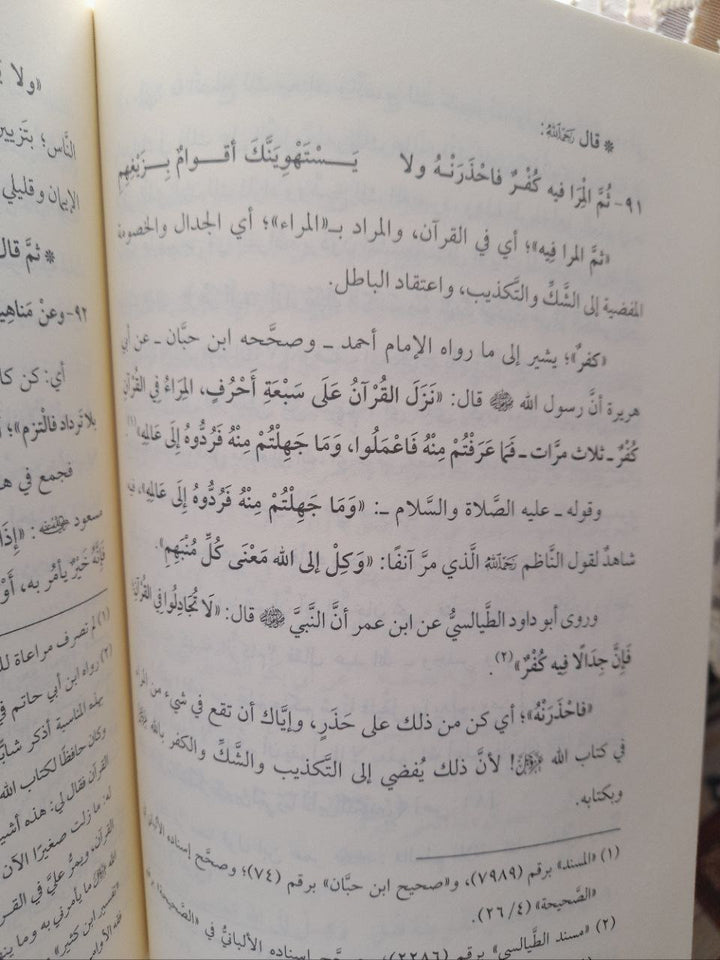 * قال رَحِمَهُ اللَّهُ:
٩١- ثُمَّ الْمِرَا فيه كُفْرٌ فاحْذَرَنْهُ ولا يَسْتَهْوِيَنَّكَ أقوامٌ بِزَيْغِهِمِ
«ثمَّ المرا فيه»؛ أي في القرآن، والمراد بـ«المراء»؛ أي الجدال والخصومة
المفضية إلى الشَّكِّ والتَّكذيب، واعتقاد الباطل.
«كفرٌ»؛ يشير إلى ما رواه الإمام أحمد ـ وصحَّحه ابن حبَّان ـ عن أبي
هريرة أنَّ رسول الله ﷺ قال: «نَزَلَ القُرْآنُ عَلَى سَبْعَةِ أَحْرُفٍ، المِرَاءُ فِي القُرْآنِ
كُفْرٌ ـ ثلاث مرَّات ـ فَمَا عَرَفْتُمْ مِنْهُ فَاعْمَلُوا، وَمَا جَهِلْتُمْ مِنْهُ فَرُدُّوهُ إِلَى عَالِمِهِ»(١).
وقوله ـ عليه الصَّلاة والسَّلام ـ: «وَمَا جَهِلْتُمْ مِنْهُ فَرُدُّوهُ إِلَى عَالِمِهِ»، فيه
شاهدٌ لقول النَّاظم رَحِمَهُ اللَّهُ الَّذي مرَّ آنفًا: «وَكِلْ إلى الله مَعْنَى كُلِّ مُنْبَهِمِ».
وروى أبو داود الطَّيالسيُّ عن ابن عمر أنَّ النَّبيَّ ﷺ قال: «لَا تُجَادِلُوا فِي القُرْآنِ
فَإِنَّ جِدَالًا فِيه كُفْرٌ»(٢).
«فاحْذَرَنْهُ»؛ أي كن من ذلك على حَذَرٍ، وإيَّاك أن تقع في شيء من المراء
في كتاب الله ﷻ! لأنَّ ذلك يُفضي إلى التَّكذيب والشَّكِّ والكفر بالله
وبكتابه.
(١) «المسند» برقم (٧٩٨٩)، و«صحيح ابن حبَّان» برقم (٧٤)؛ وصحَّح إسناده الألباني في
«الصَّحيحة» (٢٦/٤).
(٢) «مسند الطَّيالسي» برقم (٢٢٨٦)؛ وصحَّح إسناده الألبانيُّ في «الصَّحيحة»
«ولا
النَّاس؛ بتَزيين
الإيمان وقليلي
* ثمَّ قال
٩٢- وعنْ مَناهِيـ
أي: كن كا
بلا تَرداد فالْتزم»؛
فجمع في هـ
مسعود رَضِيَ اللَّهُ عَنْهُ: «إِذَا
فَإِنَّهُ خَيْرٌ يأمُر به، أَوْ
(١) لم تصرف مراعاة للـ
(٢) رواه ابن أبي حاتم في
بهذه المناسبة أذكر شابًّا
وكان حافظًا لكتاب الله
القرآن فقال لي: هذه أشيـ
له: ما زلت صغيرًا الآن
القرآن، ويمرُّ عليَّ في القر
الله ﷻ ما يأمرني به وما ينهـ
«تفسير ابن كثير»